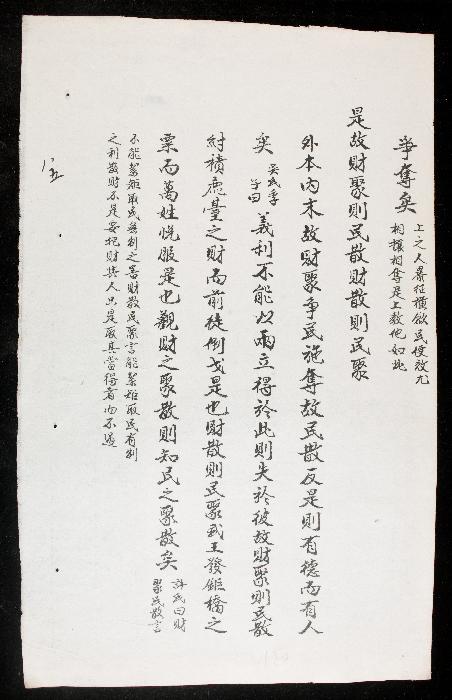 爭奪矣
上之人暴征橫斂民便效尤
相攘相奪是上教他如此
是故財聚則民散財散則民聚
外本內末故財聚爭民施奪故民散反是則有德而有人
矣
吳氏季
子曰
義利不能以兩立得於此則失於彼故財聚則民散
紂積鹿臺之財而前徒倒戈是也財散則民聚武王發鉅橋之
粟而萬姓悅服是也觀財之聚散則知民之聚散矣
許氏曰財
聚民散言
不能絜矩取民無制之害財散民聚言能絜矩取民有制
之利散財不是要把財與人只是取其當得者而不過